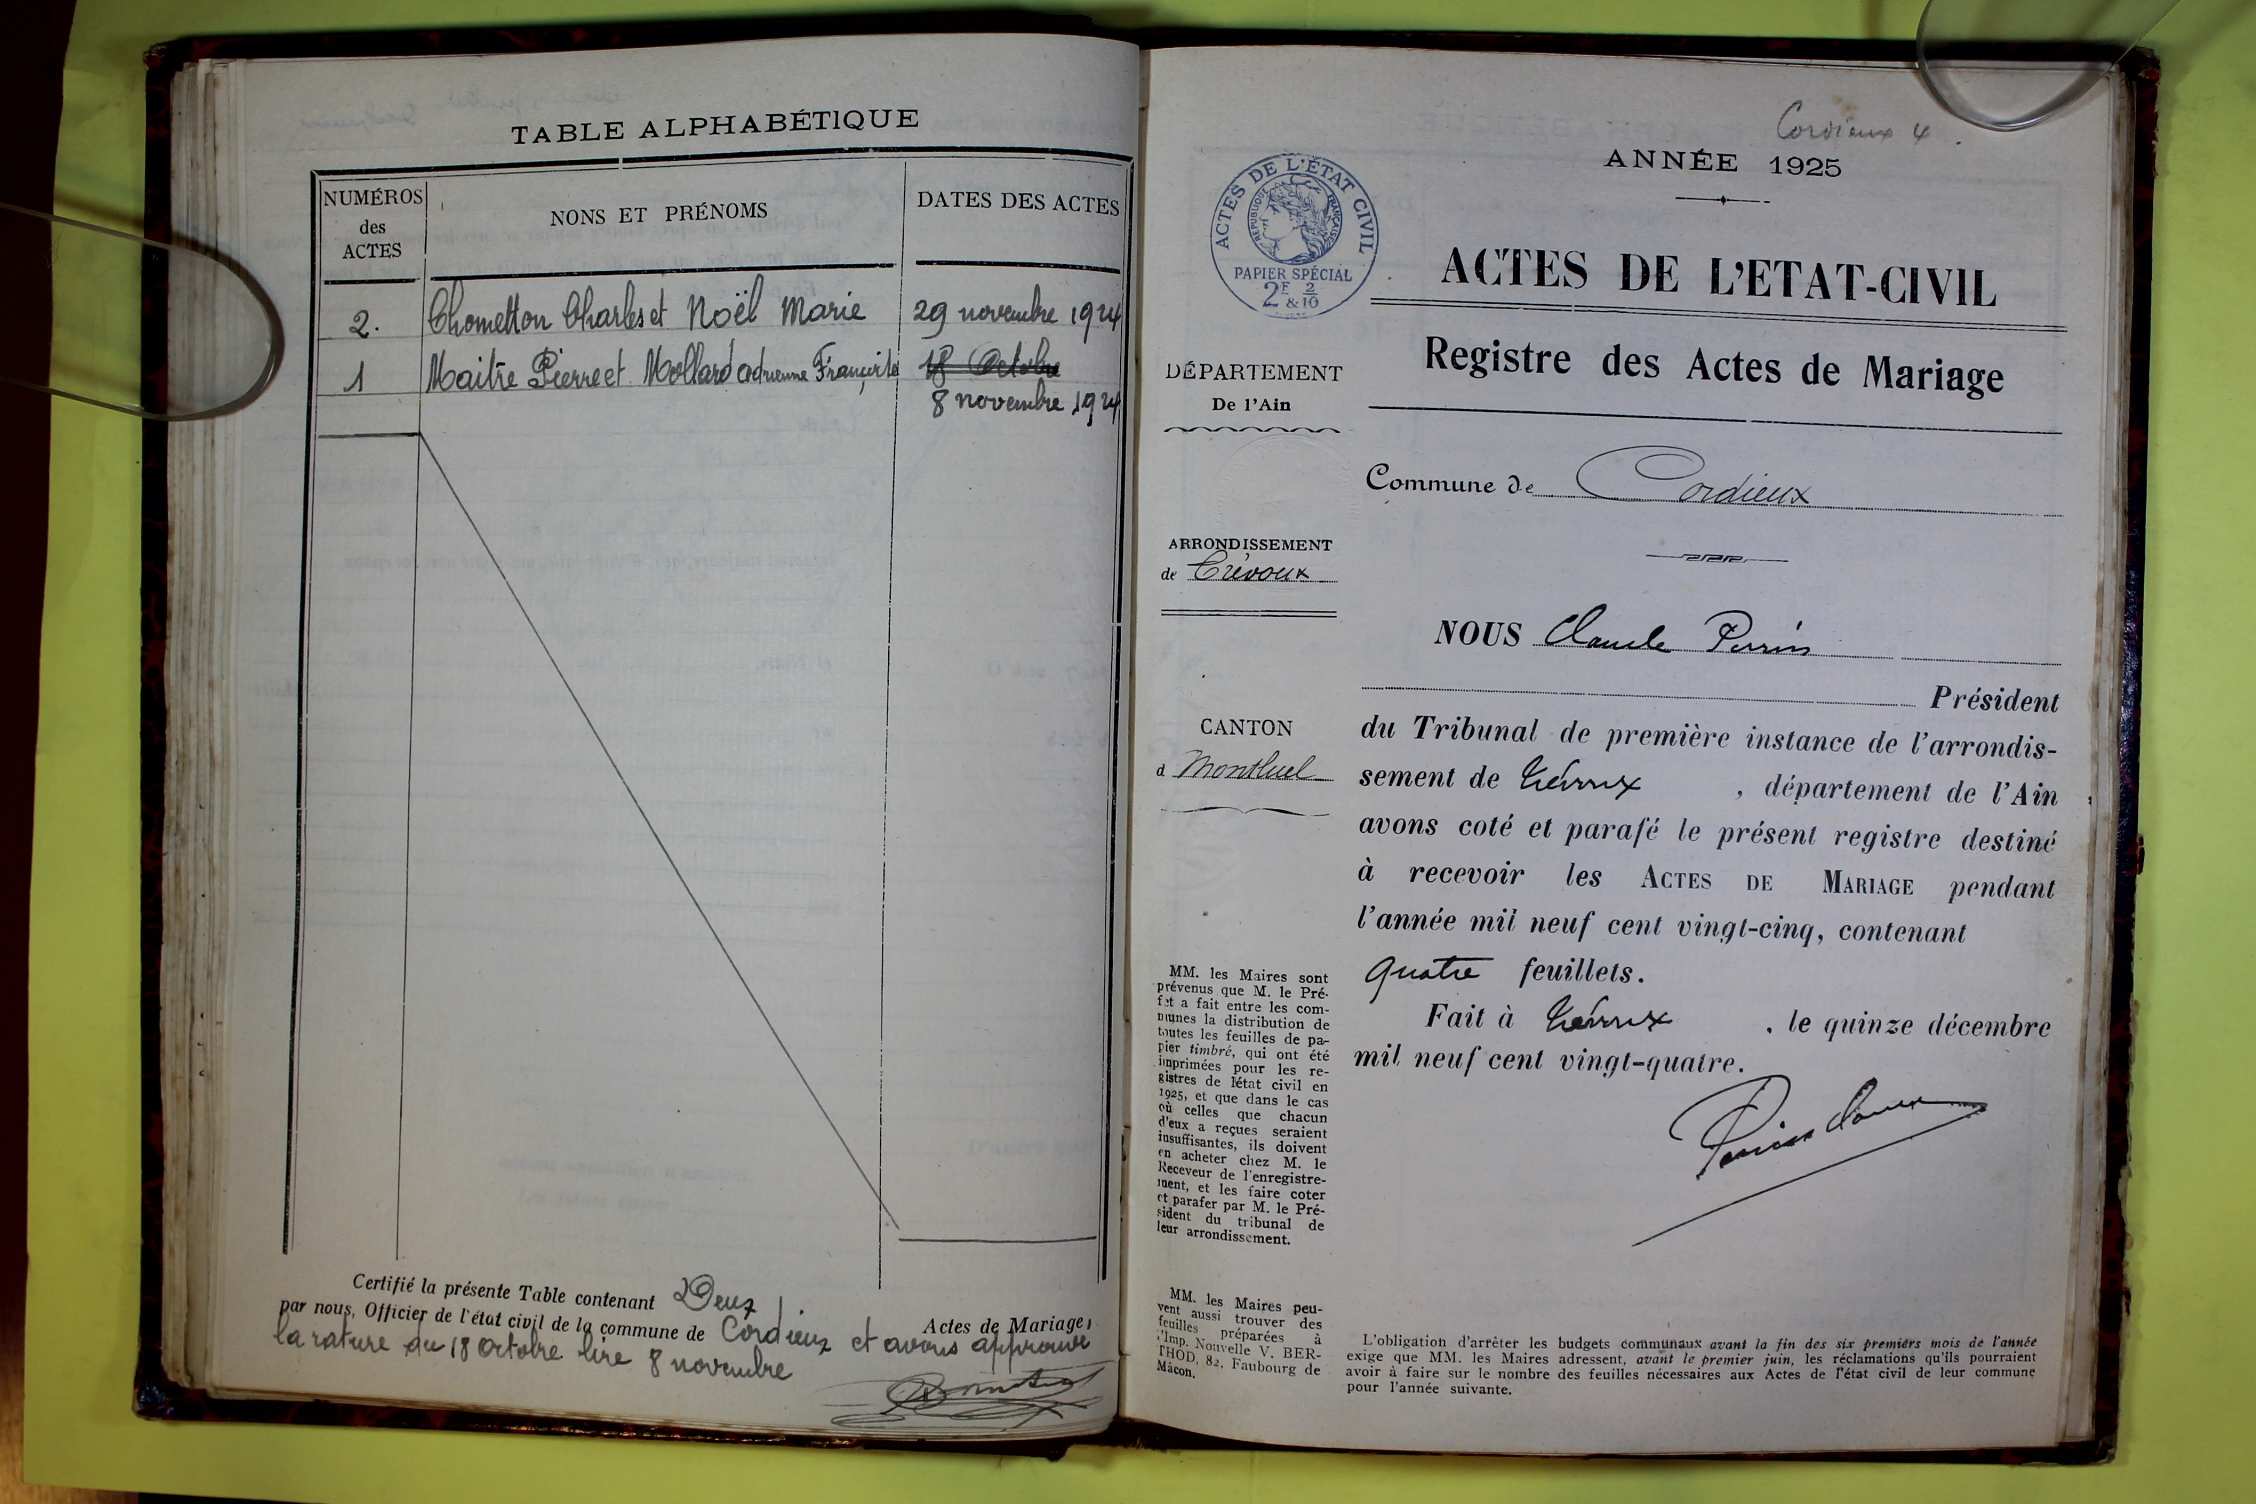 TABLE ALPHABÉTIQUE
NUMÉROS
des
ACTES
NONS ET PRÉNOMS
DATES DES ACTES
2. Chometton Charles et Noël Marie 29 novembre 1924
1 Maitre Pierre et Mollard adrienne 18 Octobre
8 novembre 1924
Certifié la présente Table contenant Deux Actes de Mariage,
par nous, Officier de l'état civil de la commune de Cordieux et avons approuvé
la rature du 18 Octobre lire 8 novembre
Cordieux 4
ANNÉE 1925
ACTES DE L'ÉTAT CIVIL
RÉPUBLIQUE FRANÇAISE
PAPIER SPÉCIAL
2F 2
& 10
ACTES DE L'ETAT-CIVIL
Registre des Actes de Mariage
DÉPARTEMENT
De l'Ain
Commune de Cordieux
ARRONDISSEMENT
de Trévoux
CANTON
d Montluel
NOUS Claude Perrin
Président
du Tribunal de première instance de l'arrondis-
sement de Trévoux, département de l'Ain
avons coté et parafé le présent registre destiné
à recevoir les ACTES DE MARIAGE pendant
l'année mil neuf cent vingt-cinq, contenant
quatre feuillets.
Fait à Trévoux, le quinze décembre
mil neuf cent vingt-quatre.
MM. les Maires sont
prévenus que M. le Pré-
fet a fait entre les com-
munes la distribution de
toutes les feuilles de pa-
pier timbré, qui ont été
imprimées pour les re-
gistres de l'état civil en
1925, et que dans le cas
où celles que chacun
d'eux a reçues seraient
insuffisantes, ils doivent
en acheter chez M. le
Receveur de l'enregistre-
ment, et les faire coter
et parafer par M. le Pré-
sident du tribunal de
leur arrondissement.
MM. les Maires peu-
vent aussi trouver des
feuilles préparées à
l'Imp. Nouvelle V. BER-
THOD, 82, Faubourg de
Mâcon.
L'obligation d'arrêter les budgets communaux avant la fin des six premiers mois de l'année
exige que MM. les Maires adressent, avant le premier juin, les réclamations qu'ils pourraient
avoir à faire sur le nombre des feuilles nécessaires aux Actes de l'état civil de leur commune
pour l'année suivante.